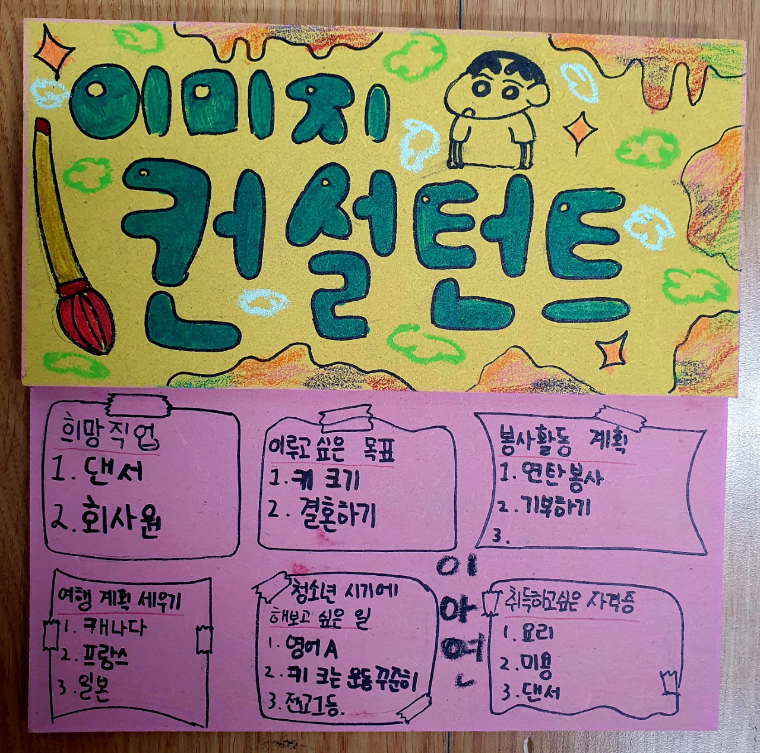 이미지
컨설턴트
희망직업
1. 댄서
2. 회사원
이루고 싶은 목표
1. 키 크기
2. 결혼하기
봉사활동 계획
1. 연탄봉사
2. 기부하기
3.
여행 계획 세우기
1. 캐나다
2. 프랑스
3. 일본
청소년 시기에
해보고 싶은 일
1. 영어 A
2. 키 크는 운동 꾸준히
3. 전교1등.
이
아
연
취득하고싶은 자격증
1. 요리
2. 미용
3. 댄서